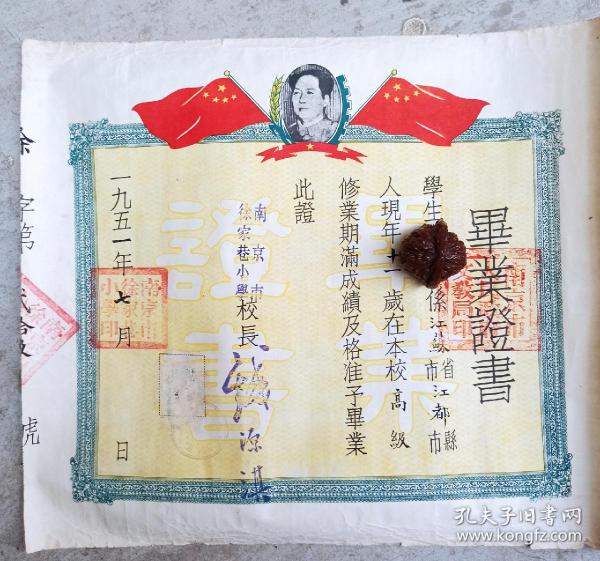 畢業證書
學生
係江蘇省市江都縣市
人現年十一歲在本校高級
修業期滿成績及格准予畢業
此證
南京市
徐家巷小學校長
一九五一年七月 日
徐字第 號
畢業
證書
南京市徐家巷小學印
孔夫子旧书网
www.kongfz.com